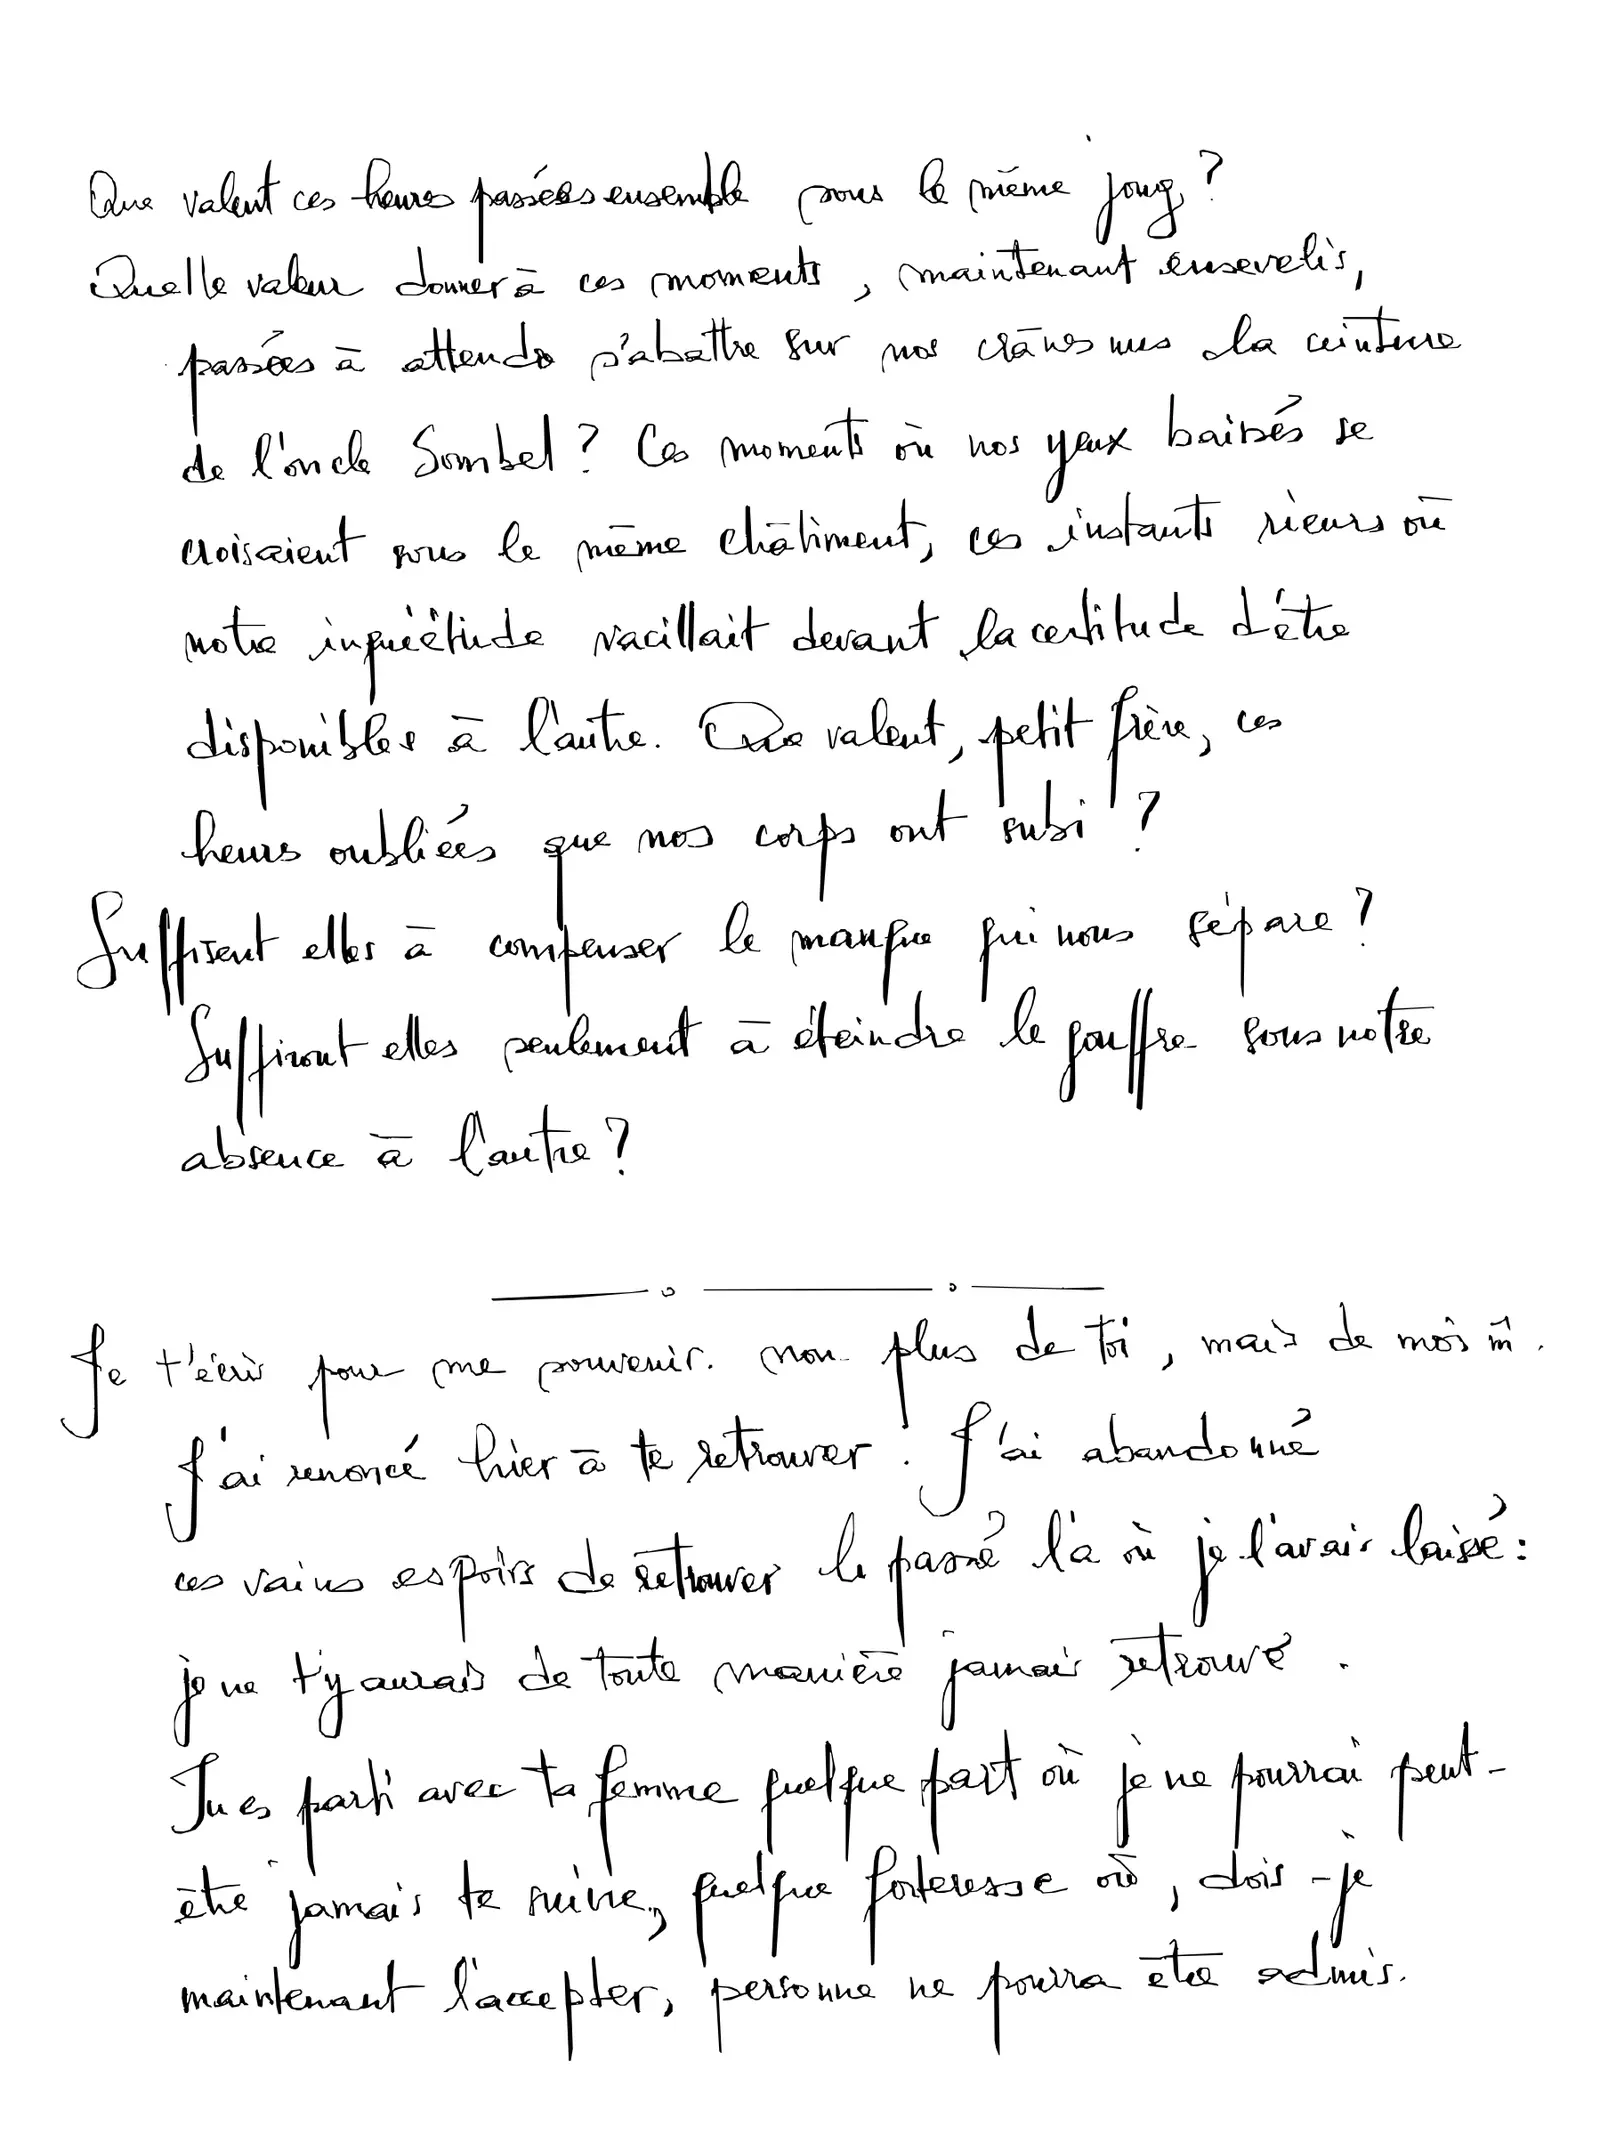 Que valent ces heures passées ensemble sous le même joug ?
Quelle valeur donner à ces moments, maintenant ensevelis,
passées à attendre s'abattre sur nos crânes nus la ceinture
de l'oncle Sombel ? Ces moments où nos yeux baissés se
croisaient sous le même châtiment, ces instants rieurs où
notre inquiétude vacillait devant la certitude d'être
disponibles à l'autre. Que valent, petit frère, ces
heures oubliées que nos corps ont subi ?
Suffisent elles à compenser le manque qui nous sépare ?
Suffiront elles seulement à éteindre le gouffre sous notre
absence à l'autre ?
Je t'écris pour me souvenir. non plus de toi, mais de moi m̂.
J'ai renoncé hier à te retrouver. J'ai abandonné
ces vains espoirs de retrouver le passé là où je l'avais laissé :
je ne t'y aurais de toute manière jamais retrouvé.
Tu es parti avec ta femme quelque part où je ne pourrai peut-
être jamais te suivre, quelque forteresse où, dois-je
maintenant l'accepter, personne ne pourra être admis.